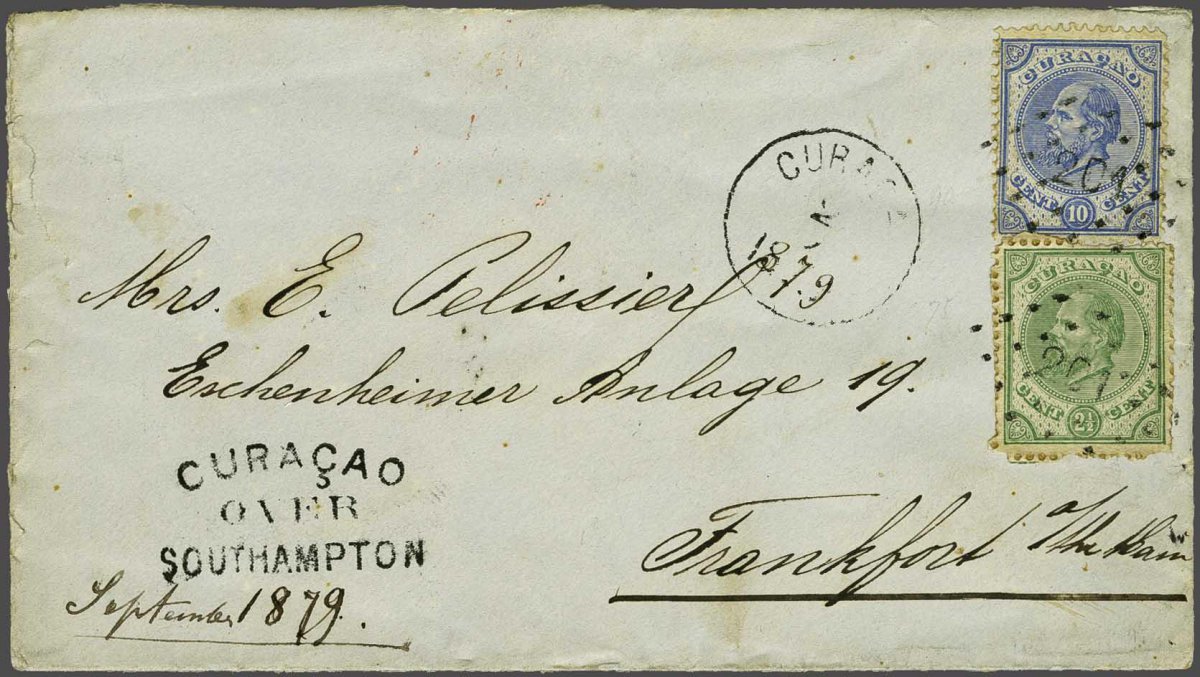 CURAÇAO
CENT 10 CENT
201
CURAÇAO
CENT 2½ CENT
201
CURAÇ
1879
Mrs. E. Pelissier
Eschenheimer Anlage 19.
CURAÇAO
OVER
SOUTHAMPTON
September 1879.
Frankfort